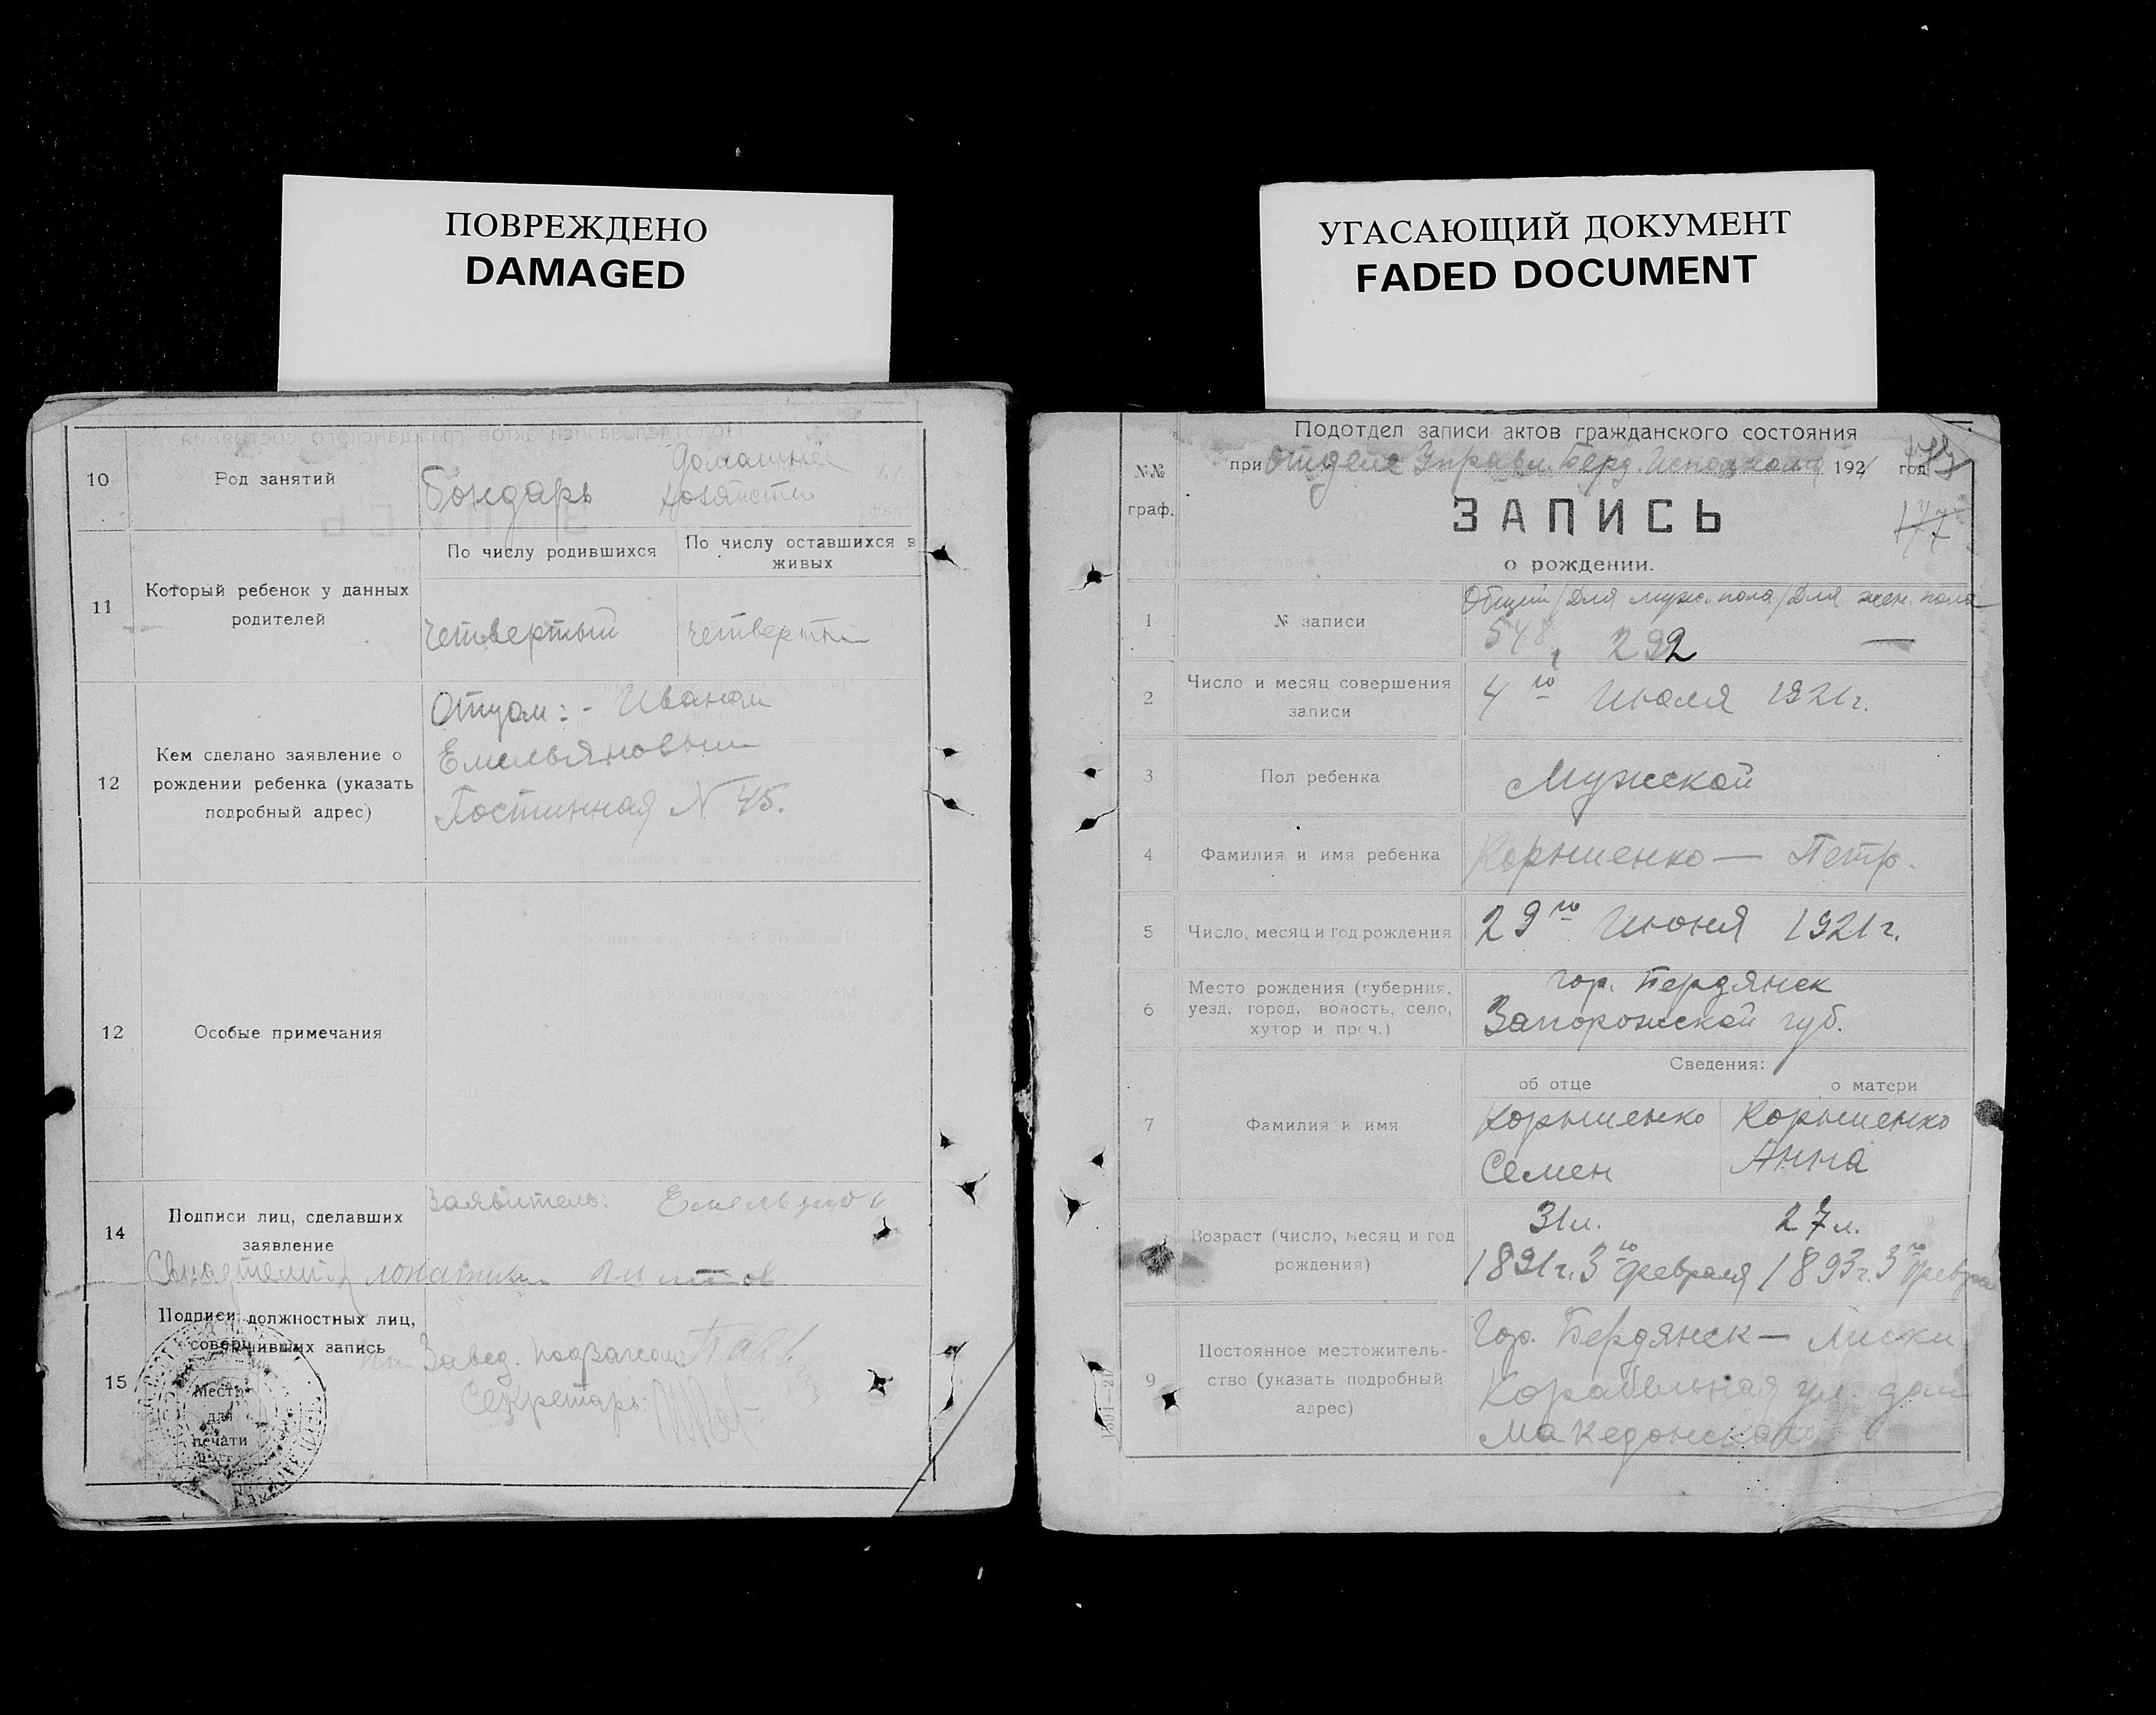 ПОВРЕЖДЕНО
DAMAGED
10
Род занятий
Бондарь
Домашнее
хозяйство
11
Который ребенок у данных
родителей
По числу родившихся
По числу оставшихся в
живых
четвертый
четвертый
12
Кем сделано заявление о
рождении ребенка (указать
подробный адрес)
Отцом: - Иваном
Емельяновым
Гостинная N 45.
12
Особые примечания
14
Подписи лиц, сделавших
заявление
Заявитель: Емельянов
15
Подписи должностных лиц,
совершивших запись
Завед. подзагсом
Секретарь:
Место
для
печати
УГАСАЮЩИЙ ДОКУМЕНТ
FADED DOCUMENT
Подотдел записи актов гражданского состояния
при отделе Управл. Берд. Исполкома 1921 год
№№
граф.
ЗАПИСЬ
177
о рождении.
1
№ записи
Общий / Для мужс. пола / Для жен. пола
548 292 —
2
Число и месяц совершения
записи
4го Июля 1921г.
3
Пол ребенка
Мужской
4
Фамилия и имя ребенка
Корниенко — Петр.
5
Число, месяц и год рождения
29го Июня 1921г.
6
Место рождения (губерния,
уезд, город, волость, село,
хутор и проч.)
гор. Бердянск
Запорожской губ.
Сведения:
об отце
о матери
7
Фамилия и имя
Корниенко
Семен
Корниенко
Анна
Возраст (число, месяц и год
рождения)
31л.
1891г. 3го февраля
27л.
1893г. 3го февра
9
Постоянное местожитель-
ство (указать подробный
адрес)
Гор. Бердянск — Лиски
Корабельная ул. дом
Македонской